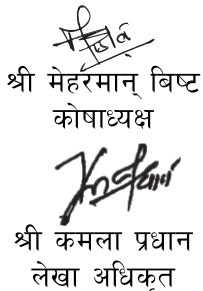 श्री मेहरमान् बिष्ट
कोषाध्यक्ष
श्री कमला प्रधान
लेखा अधिकृत